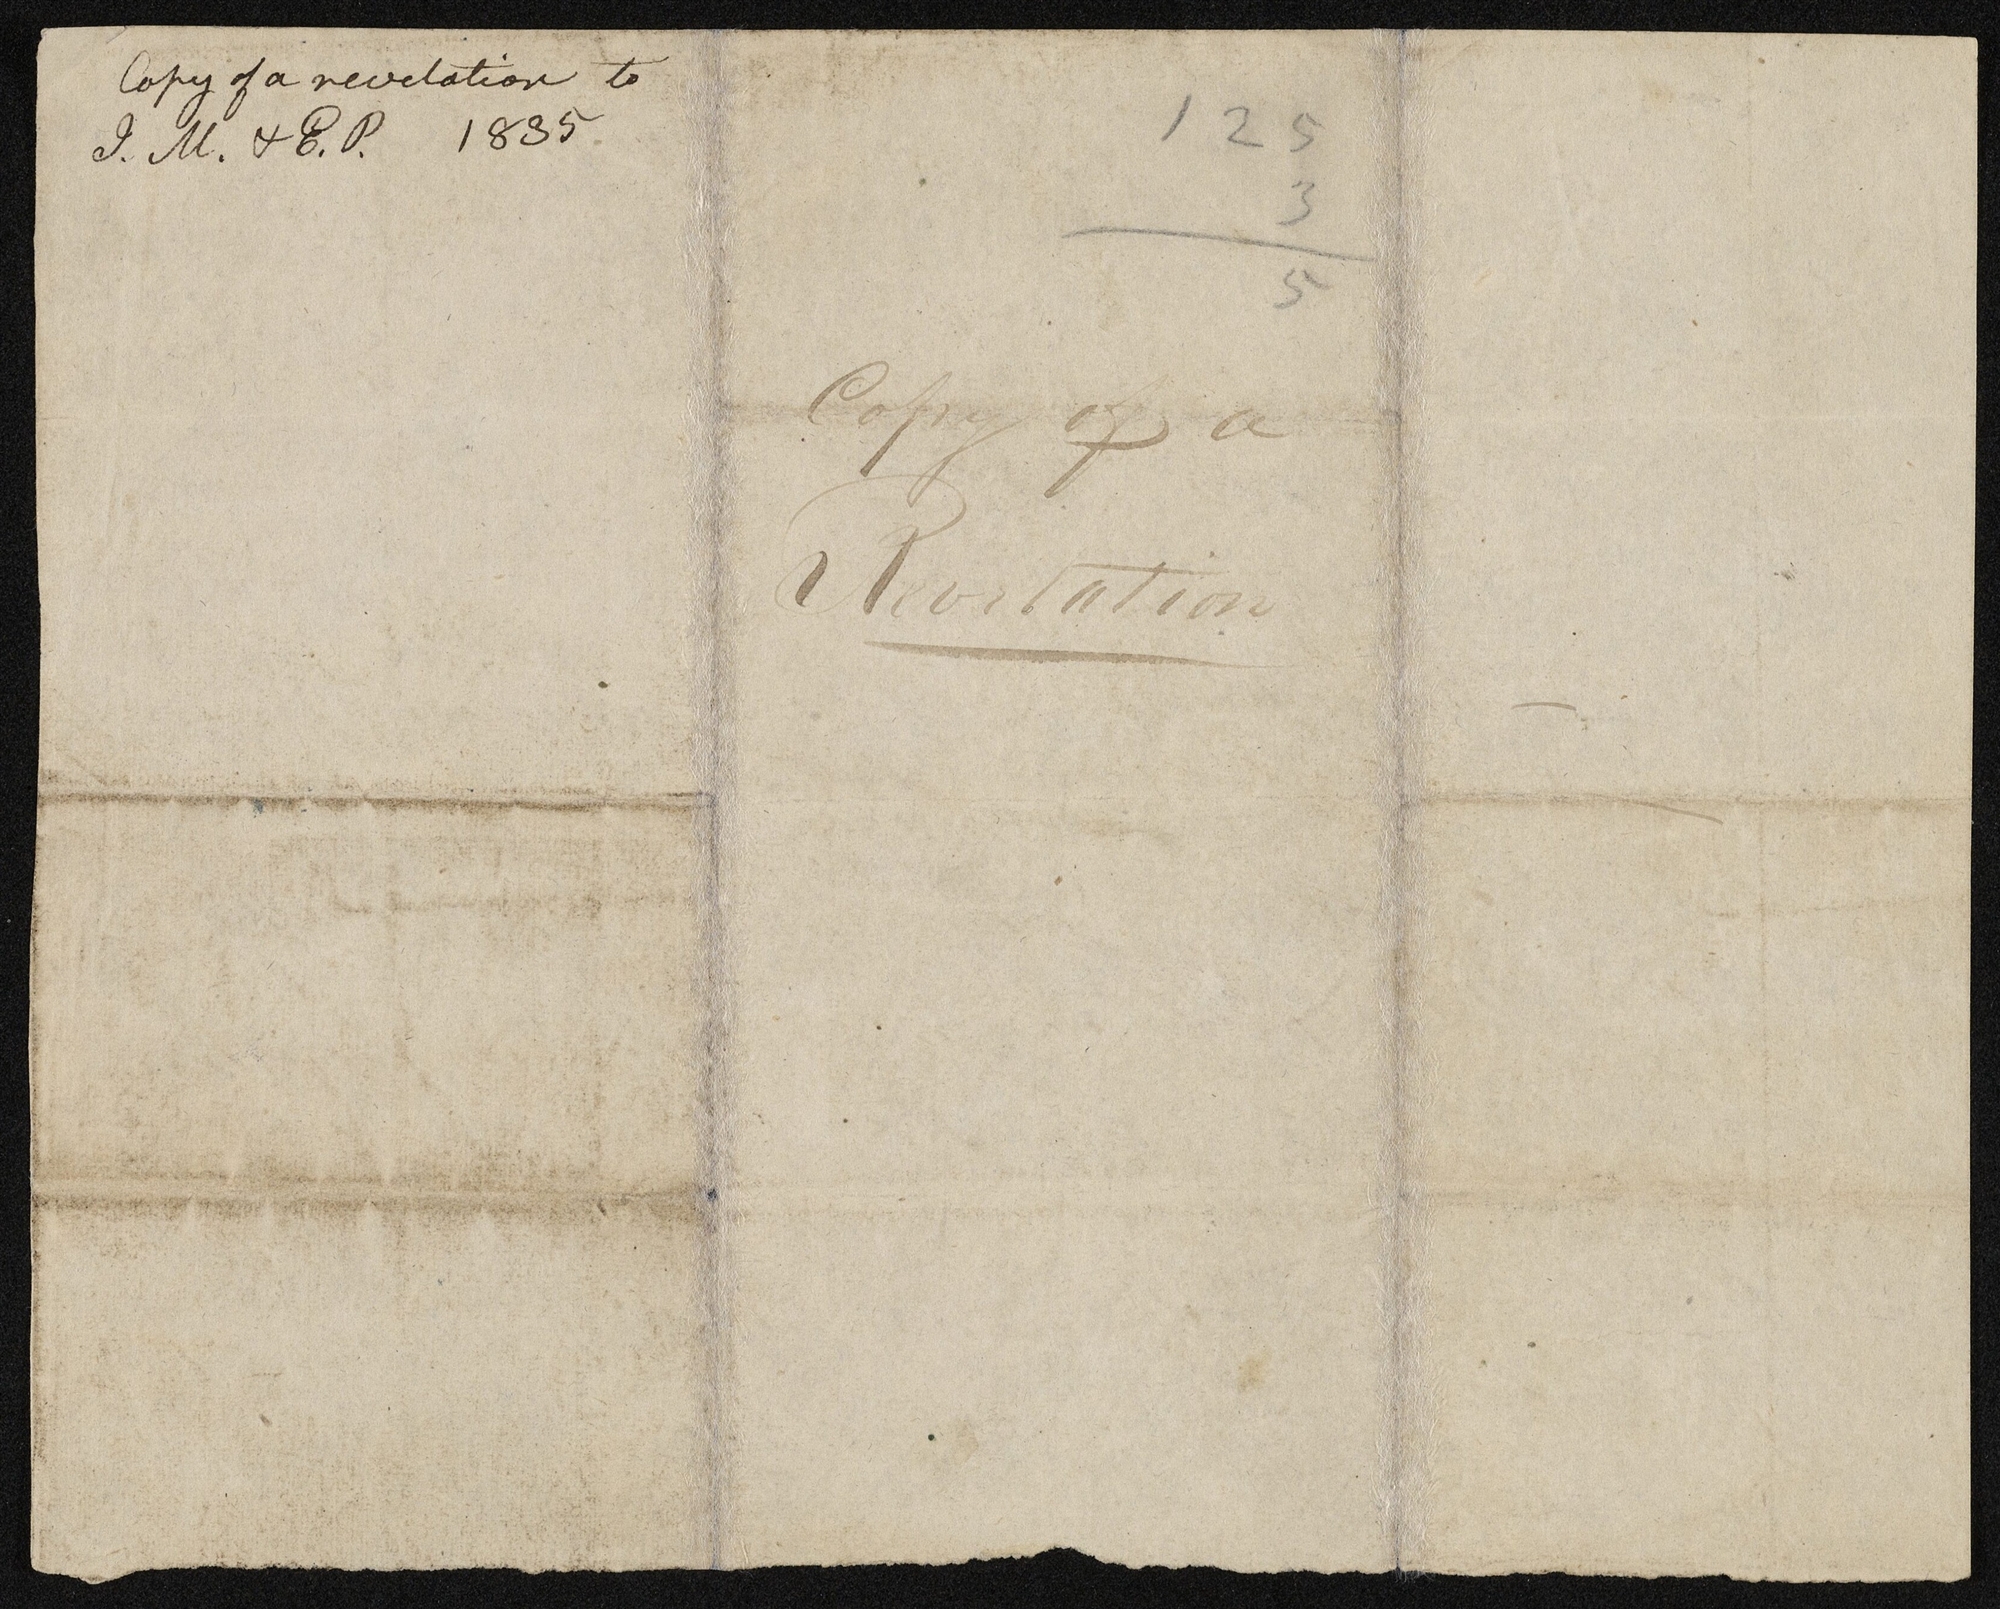 Copy of a revelation to
I. M. & E. P. 1835
125
3
5
Copy of a
Revelation